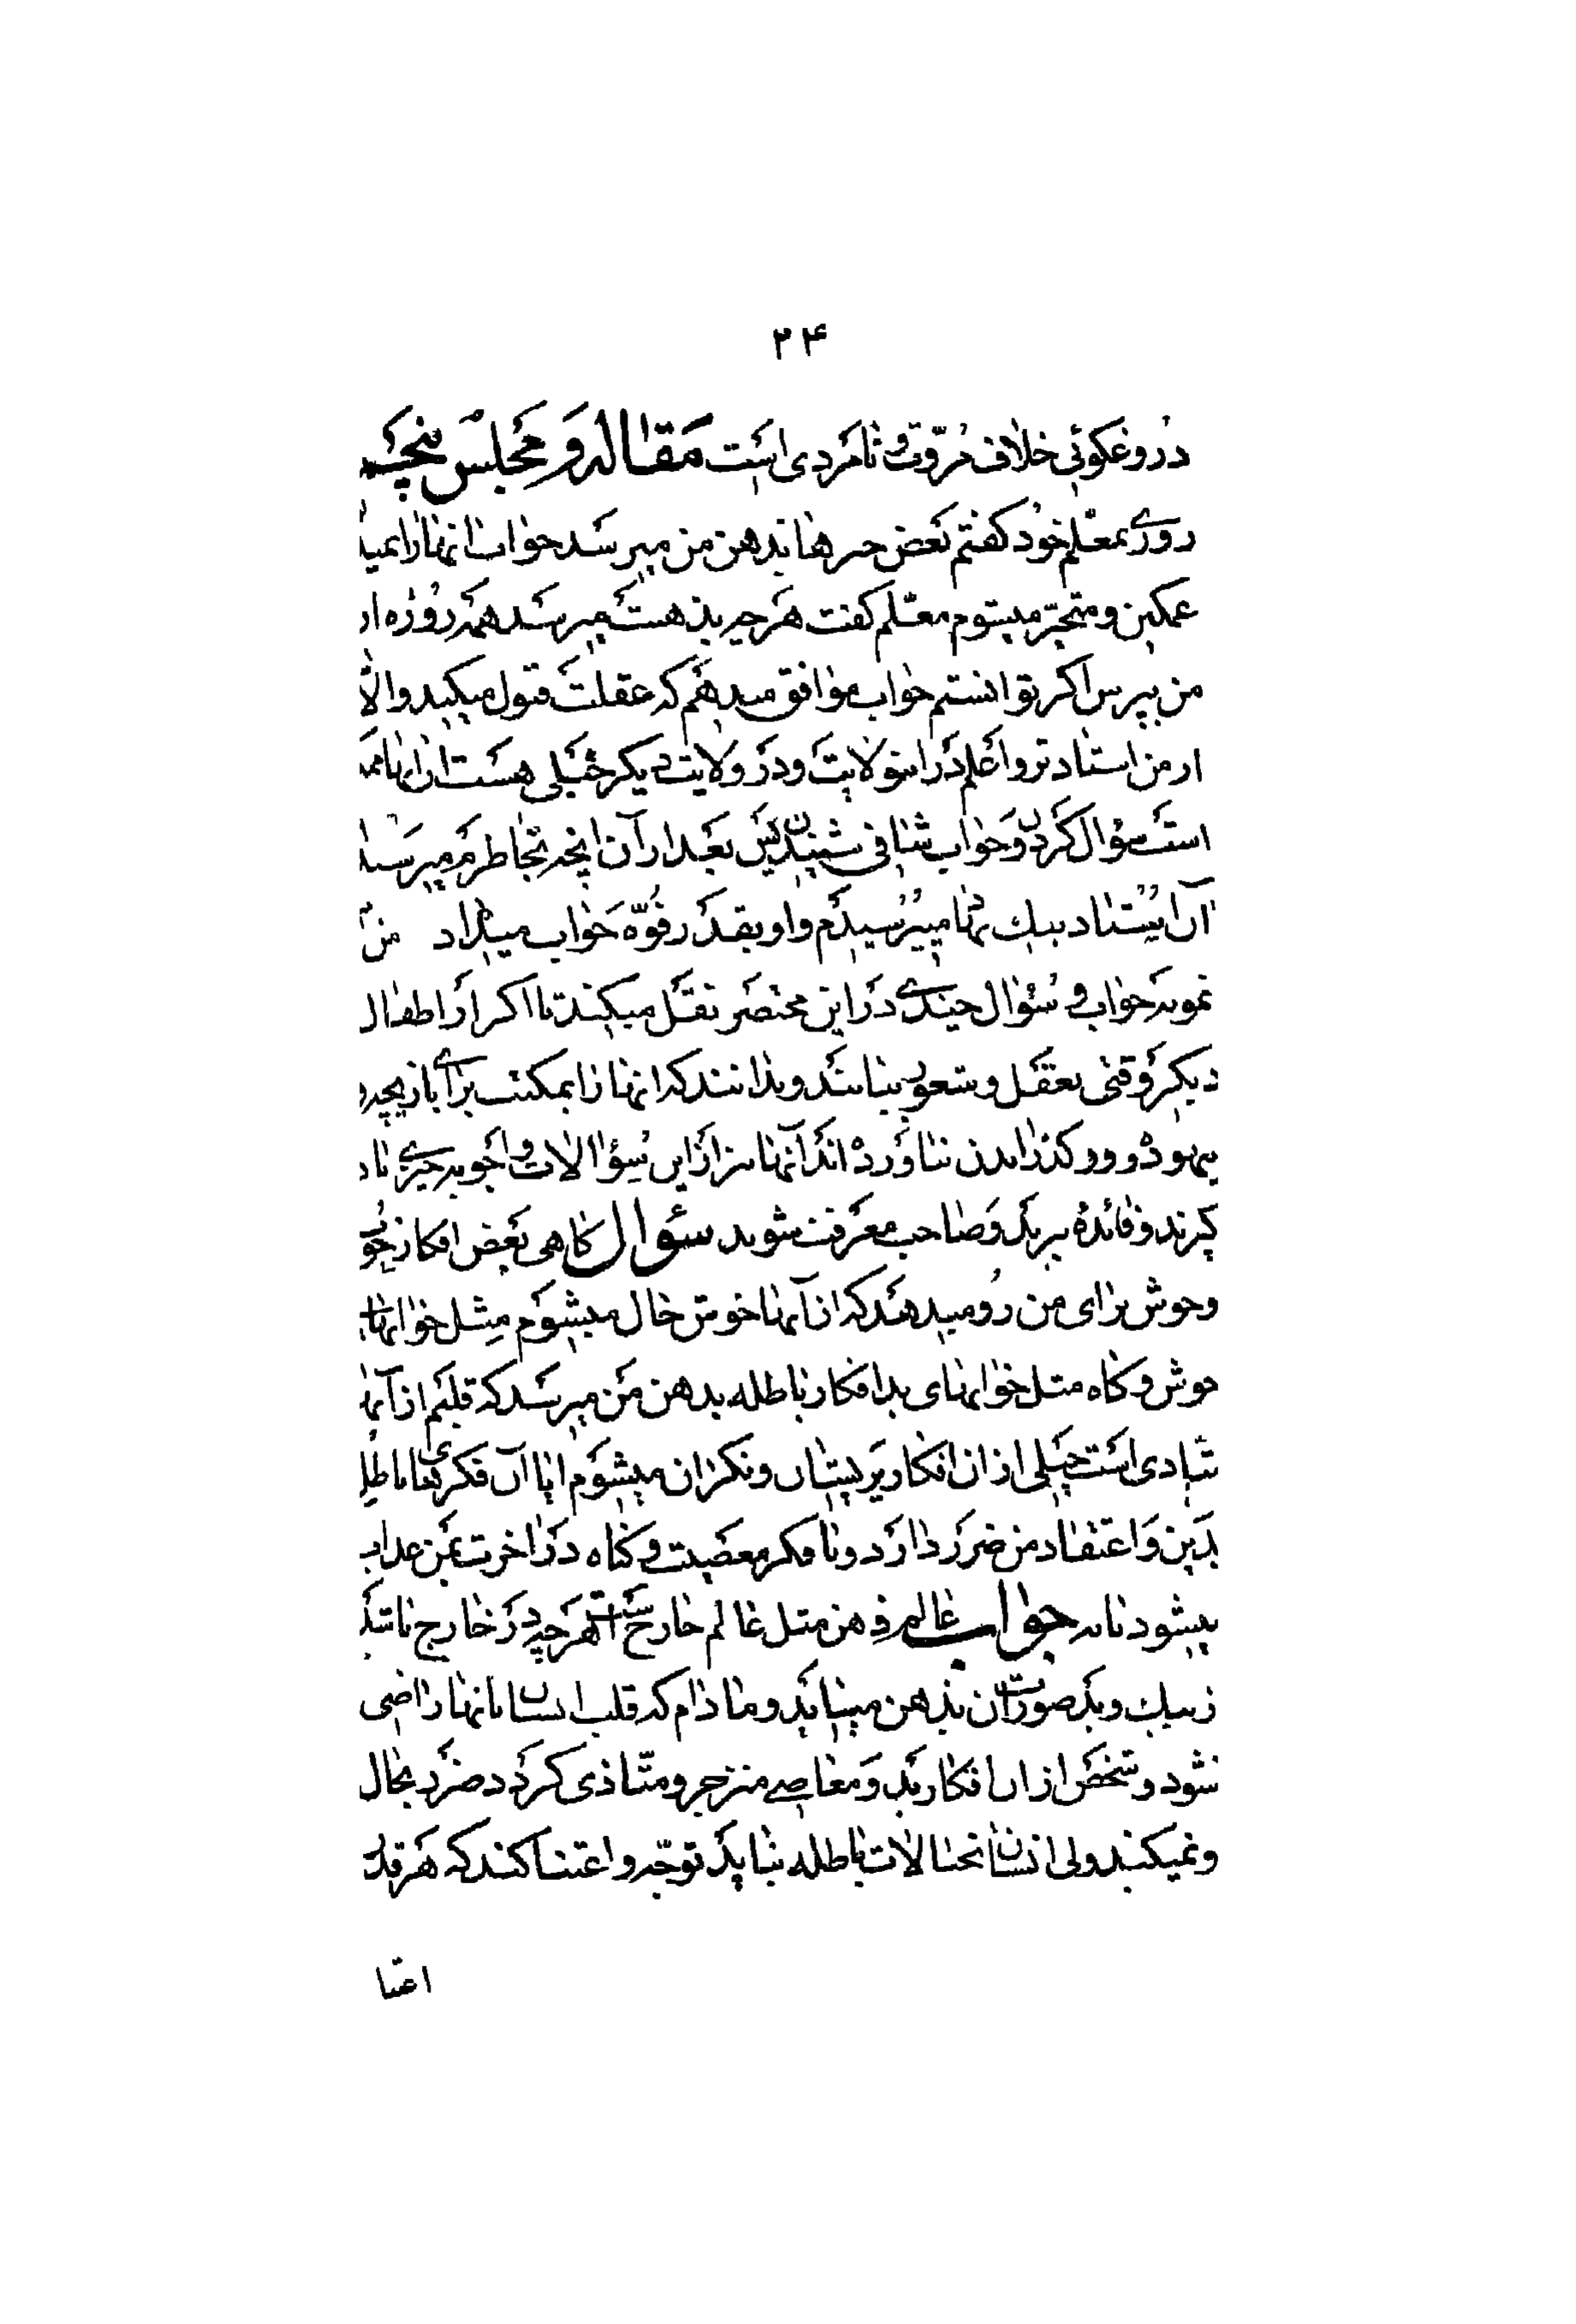 ۲۴
دروغگوئی خلاف مروّت و نامردی است مقاله و مجلس پنجـ
روزی بمعلّم خود گفتم بعض چیزها بذهن من میرسد جواب انها را نمیدا
غمگین و متحیّر میشوم معلّم گفت هر چه بذهنت میرسد همه روزه از
من بپرس اگر توانستم جواب موافق میدهم که عقلت قبول میکند والّا
از من استادتر و اعلم در این ولایت و در ولایت دیگر خیلی هست از انها
است سؤال کردن و جواب شافی شنیدن پس بعد از آن انچه بخاطرم میرسید
از آن استاد نیک نهاد میپرسیدم و او بقدر قوّه جواب میداد من
نمونه جواب و سؤال چندی در این مختصر نقل میکند تا اگر از اطفال
دیگر وقتی بعقل و شعور بیایند و بدانند که انها را بمکتب برای بازیچه و
بیهوده و روز گذراندن نیاورده اند آنها نیز از این سؤالات و اجوبه چیزی یاد
گیرند و فائده برند و صاحب معرفت شوند سؤال گاهی بعض افکار خوب
و خوش برای من رو میدهد که از آنها خوش حال میشوم مثل خوابهای
خوش و گاه مثل خوابهای بد افکار باطله بذهن من میرسد که قلبم از آنها
شادی است خیلی از ان افکار پریشان و نگران میشوم ایا آن فکرهای باطل
بدین و اعتقاد من ضرر دارد و یا فکر معصیت و گناه در اخرت بمن عذاب
میشود یا نه جواب عالم ذهن مثل عالم خارج است هر چه در خارج باشد
ز نیک و بد صورت آن بذهن میباید و مادام که قلب انسان بانها راضی
نشود و شخص از ان افکار بد و معاصی منزجر و متأذی گردد ضرر بحال
او نمیکند ولی انسان بخیالات باطله نباید توجّه و اعتنا کند که هر قدر
اعتنا